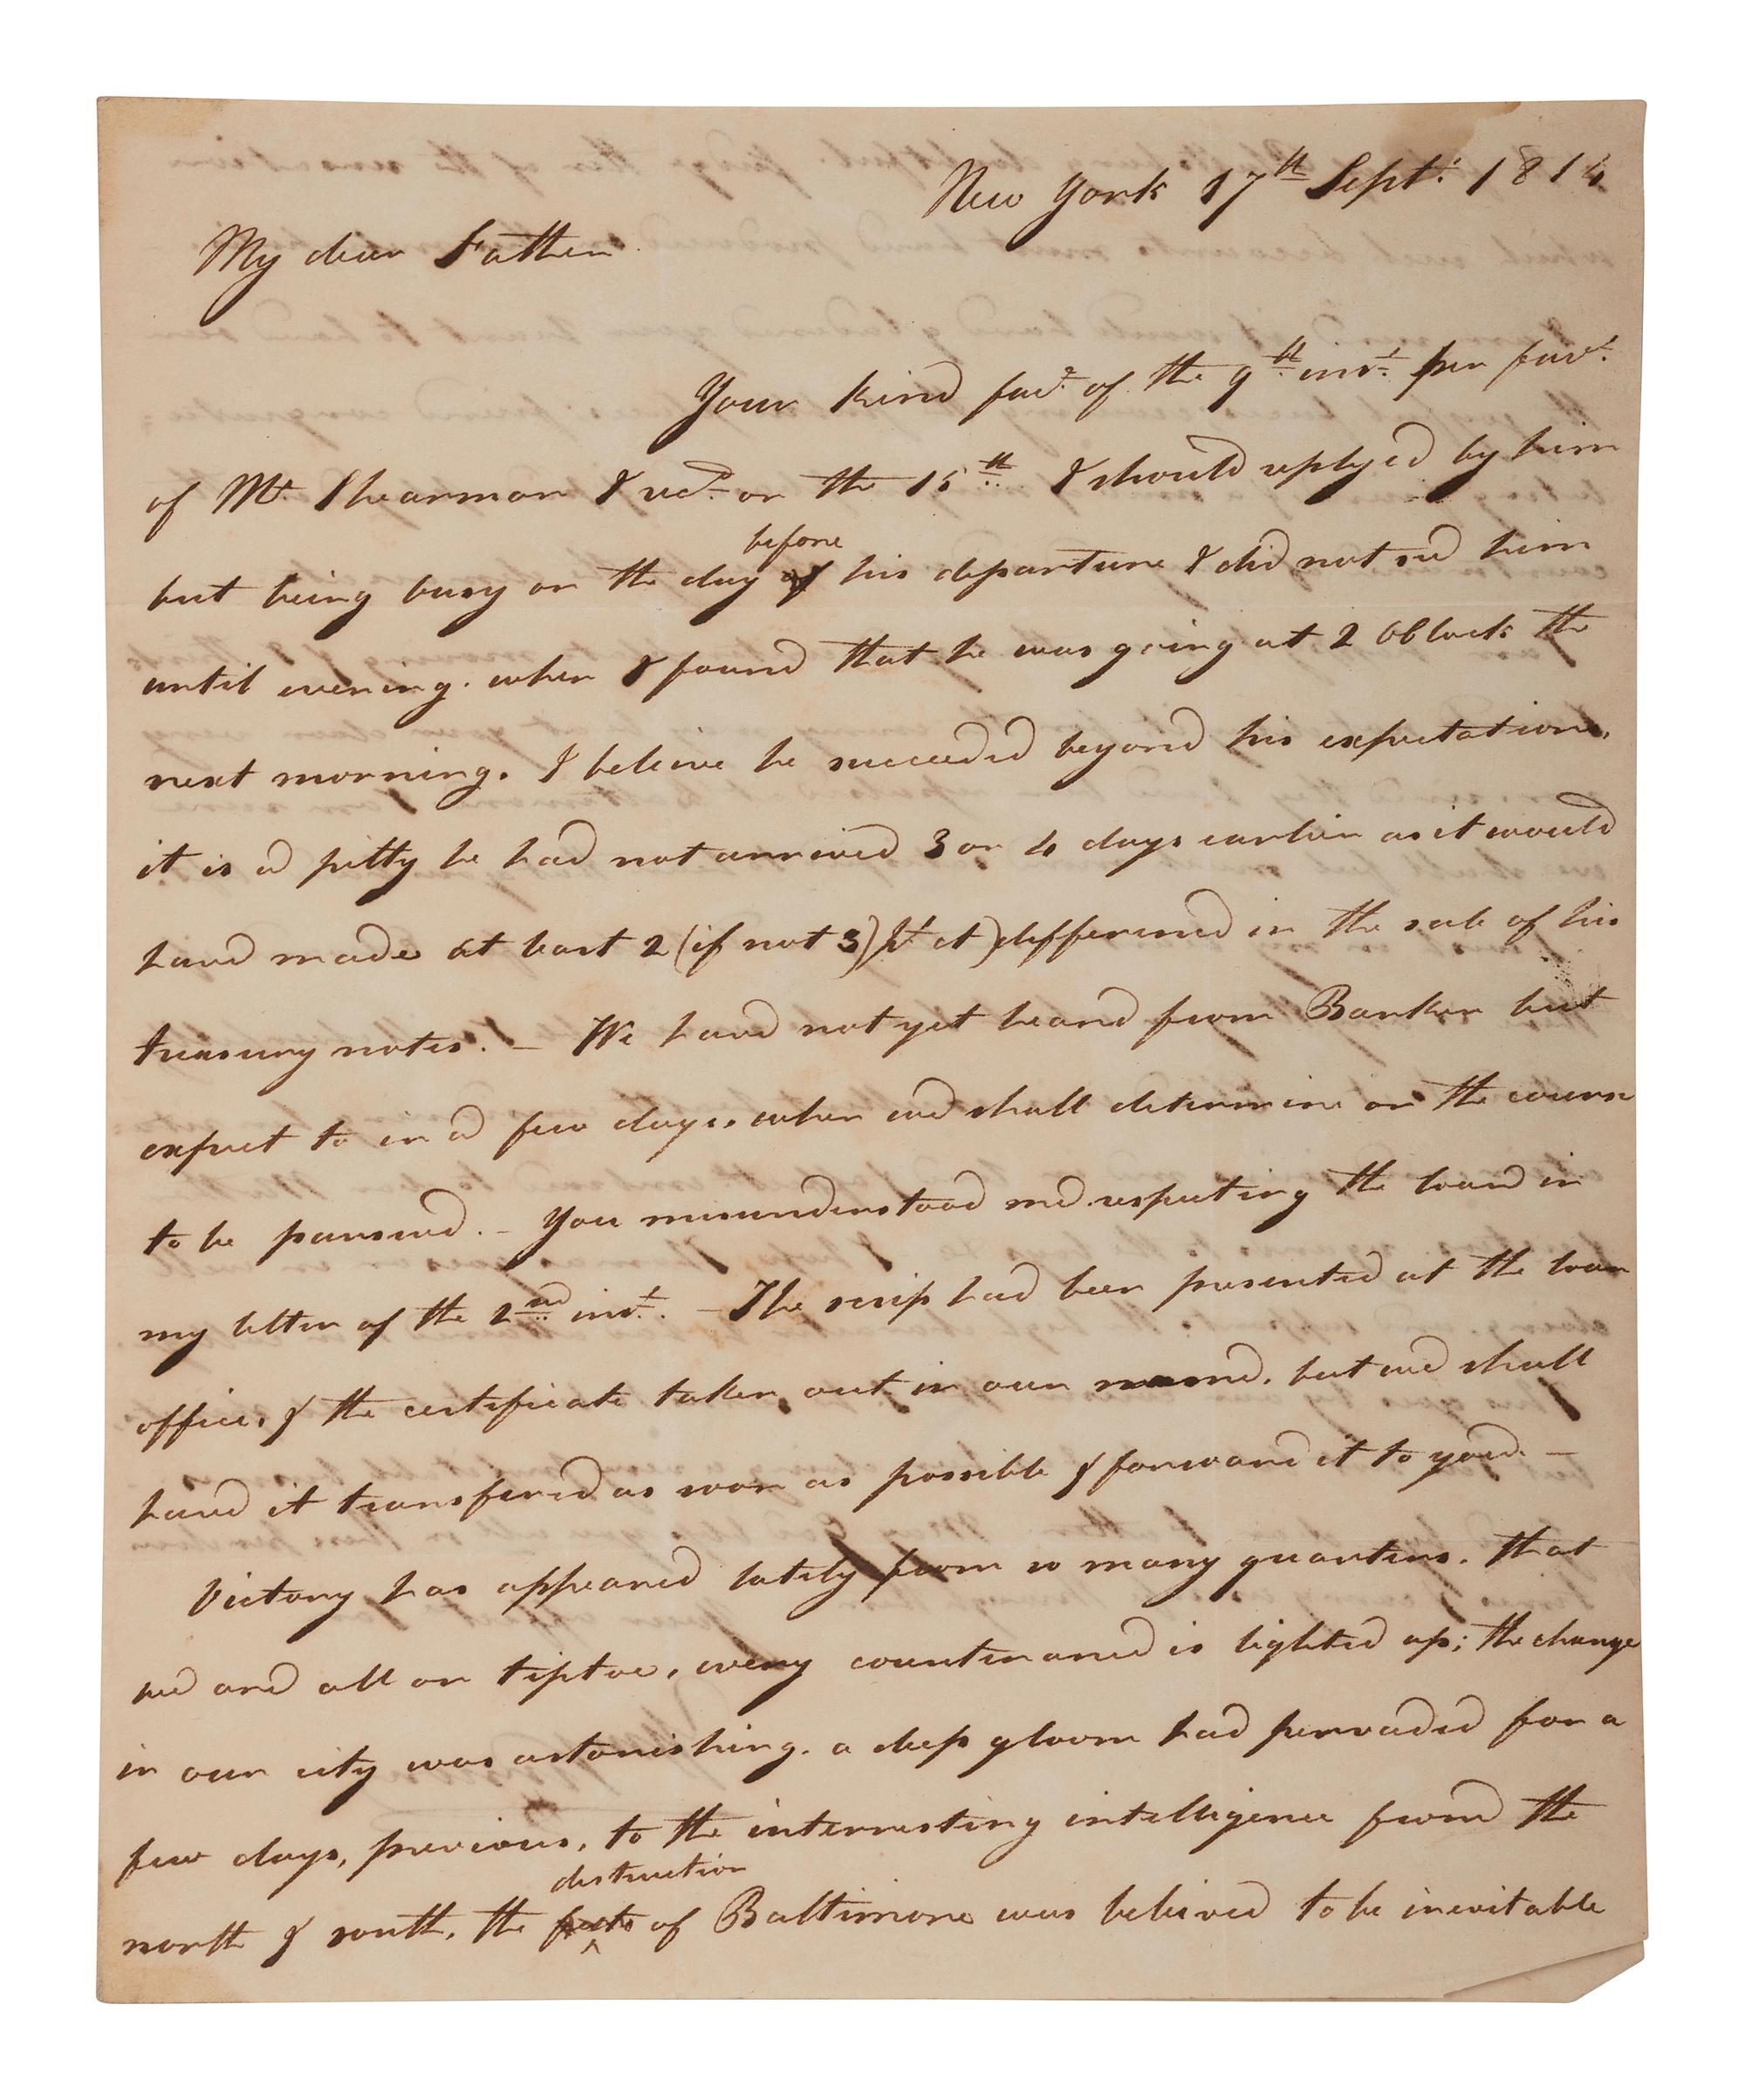 New York 17th Sept. 1814
My dear Father
Your kind fav.r of the 9th inst. per fav.r
of Mr. Shearman I recd. on the 15th I should replyed by him
before
but being busy on the day of his departure I did not see him
until evening. when I found that he was going at 2 OClock the
next morning. I believe he succeeded beyond his expectations,
it is a pitty he had not arrived 3 or 4 days earlier as it would
have made at least 2 (if not 3) pr ct) difference in the sale of his
treasury notes. — We have not yet heard from Barker but
expect to in a few days, when we shall determine on the course
to be pursued. — You misunderstood me respecting the loan in
my letter of the 2nd inst. — The scrip had been presented at the loan
office, & the certificate taken out in our name, but we shall
have it transfered as soon as possible & forward it to you. —
Victory has appeared lately from so many quarters. that
we are all on tiptoe, every countenance is lighted up; the change
in our city was astonishing. a deep gloom had pervaded for a
few days, previous, to the interresting intelligence from the
destruction
north & south, the fate of Baltimore was believed to be inevitable